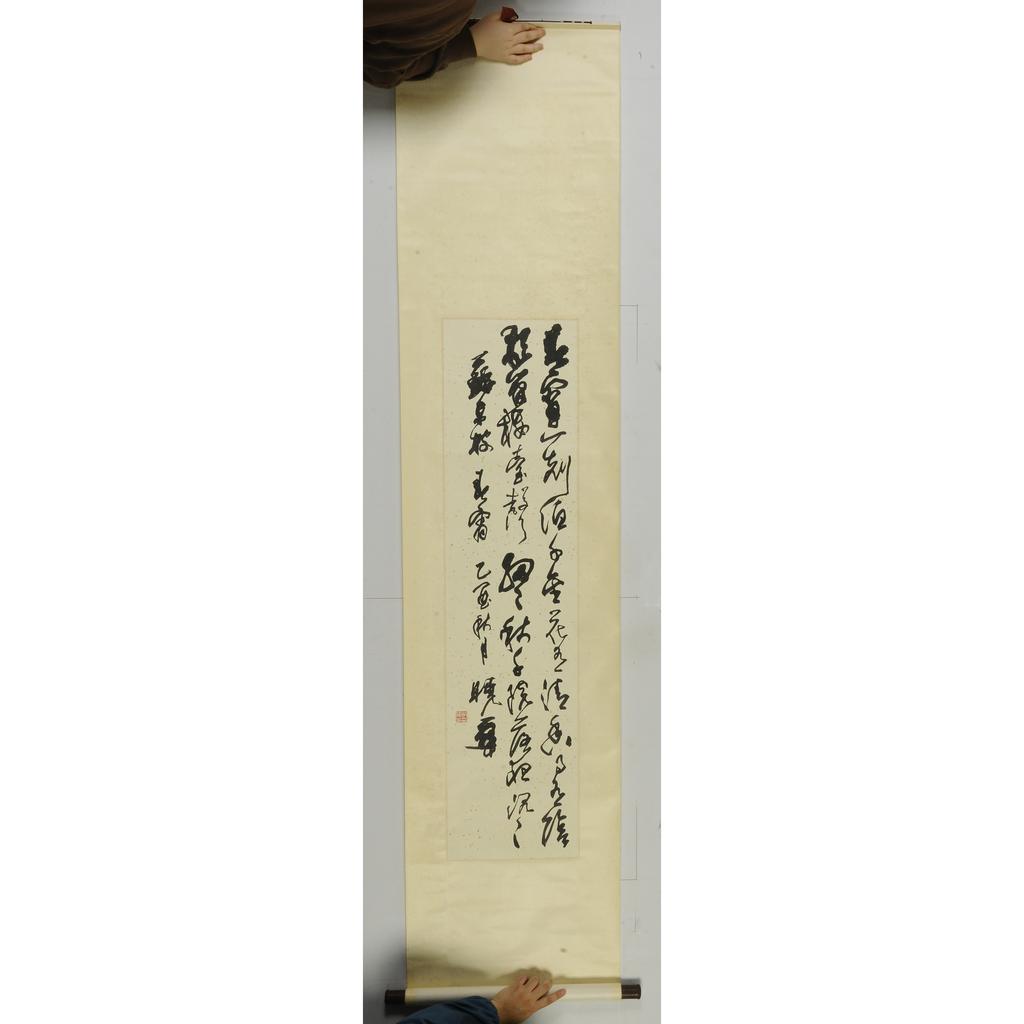 春宵一刻值千金花有清香月有陰
歌管樓臺聲細細秋千院落夜沉沉
蘇東坡春宵乙酉秋月曉